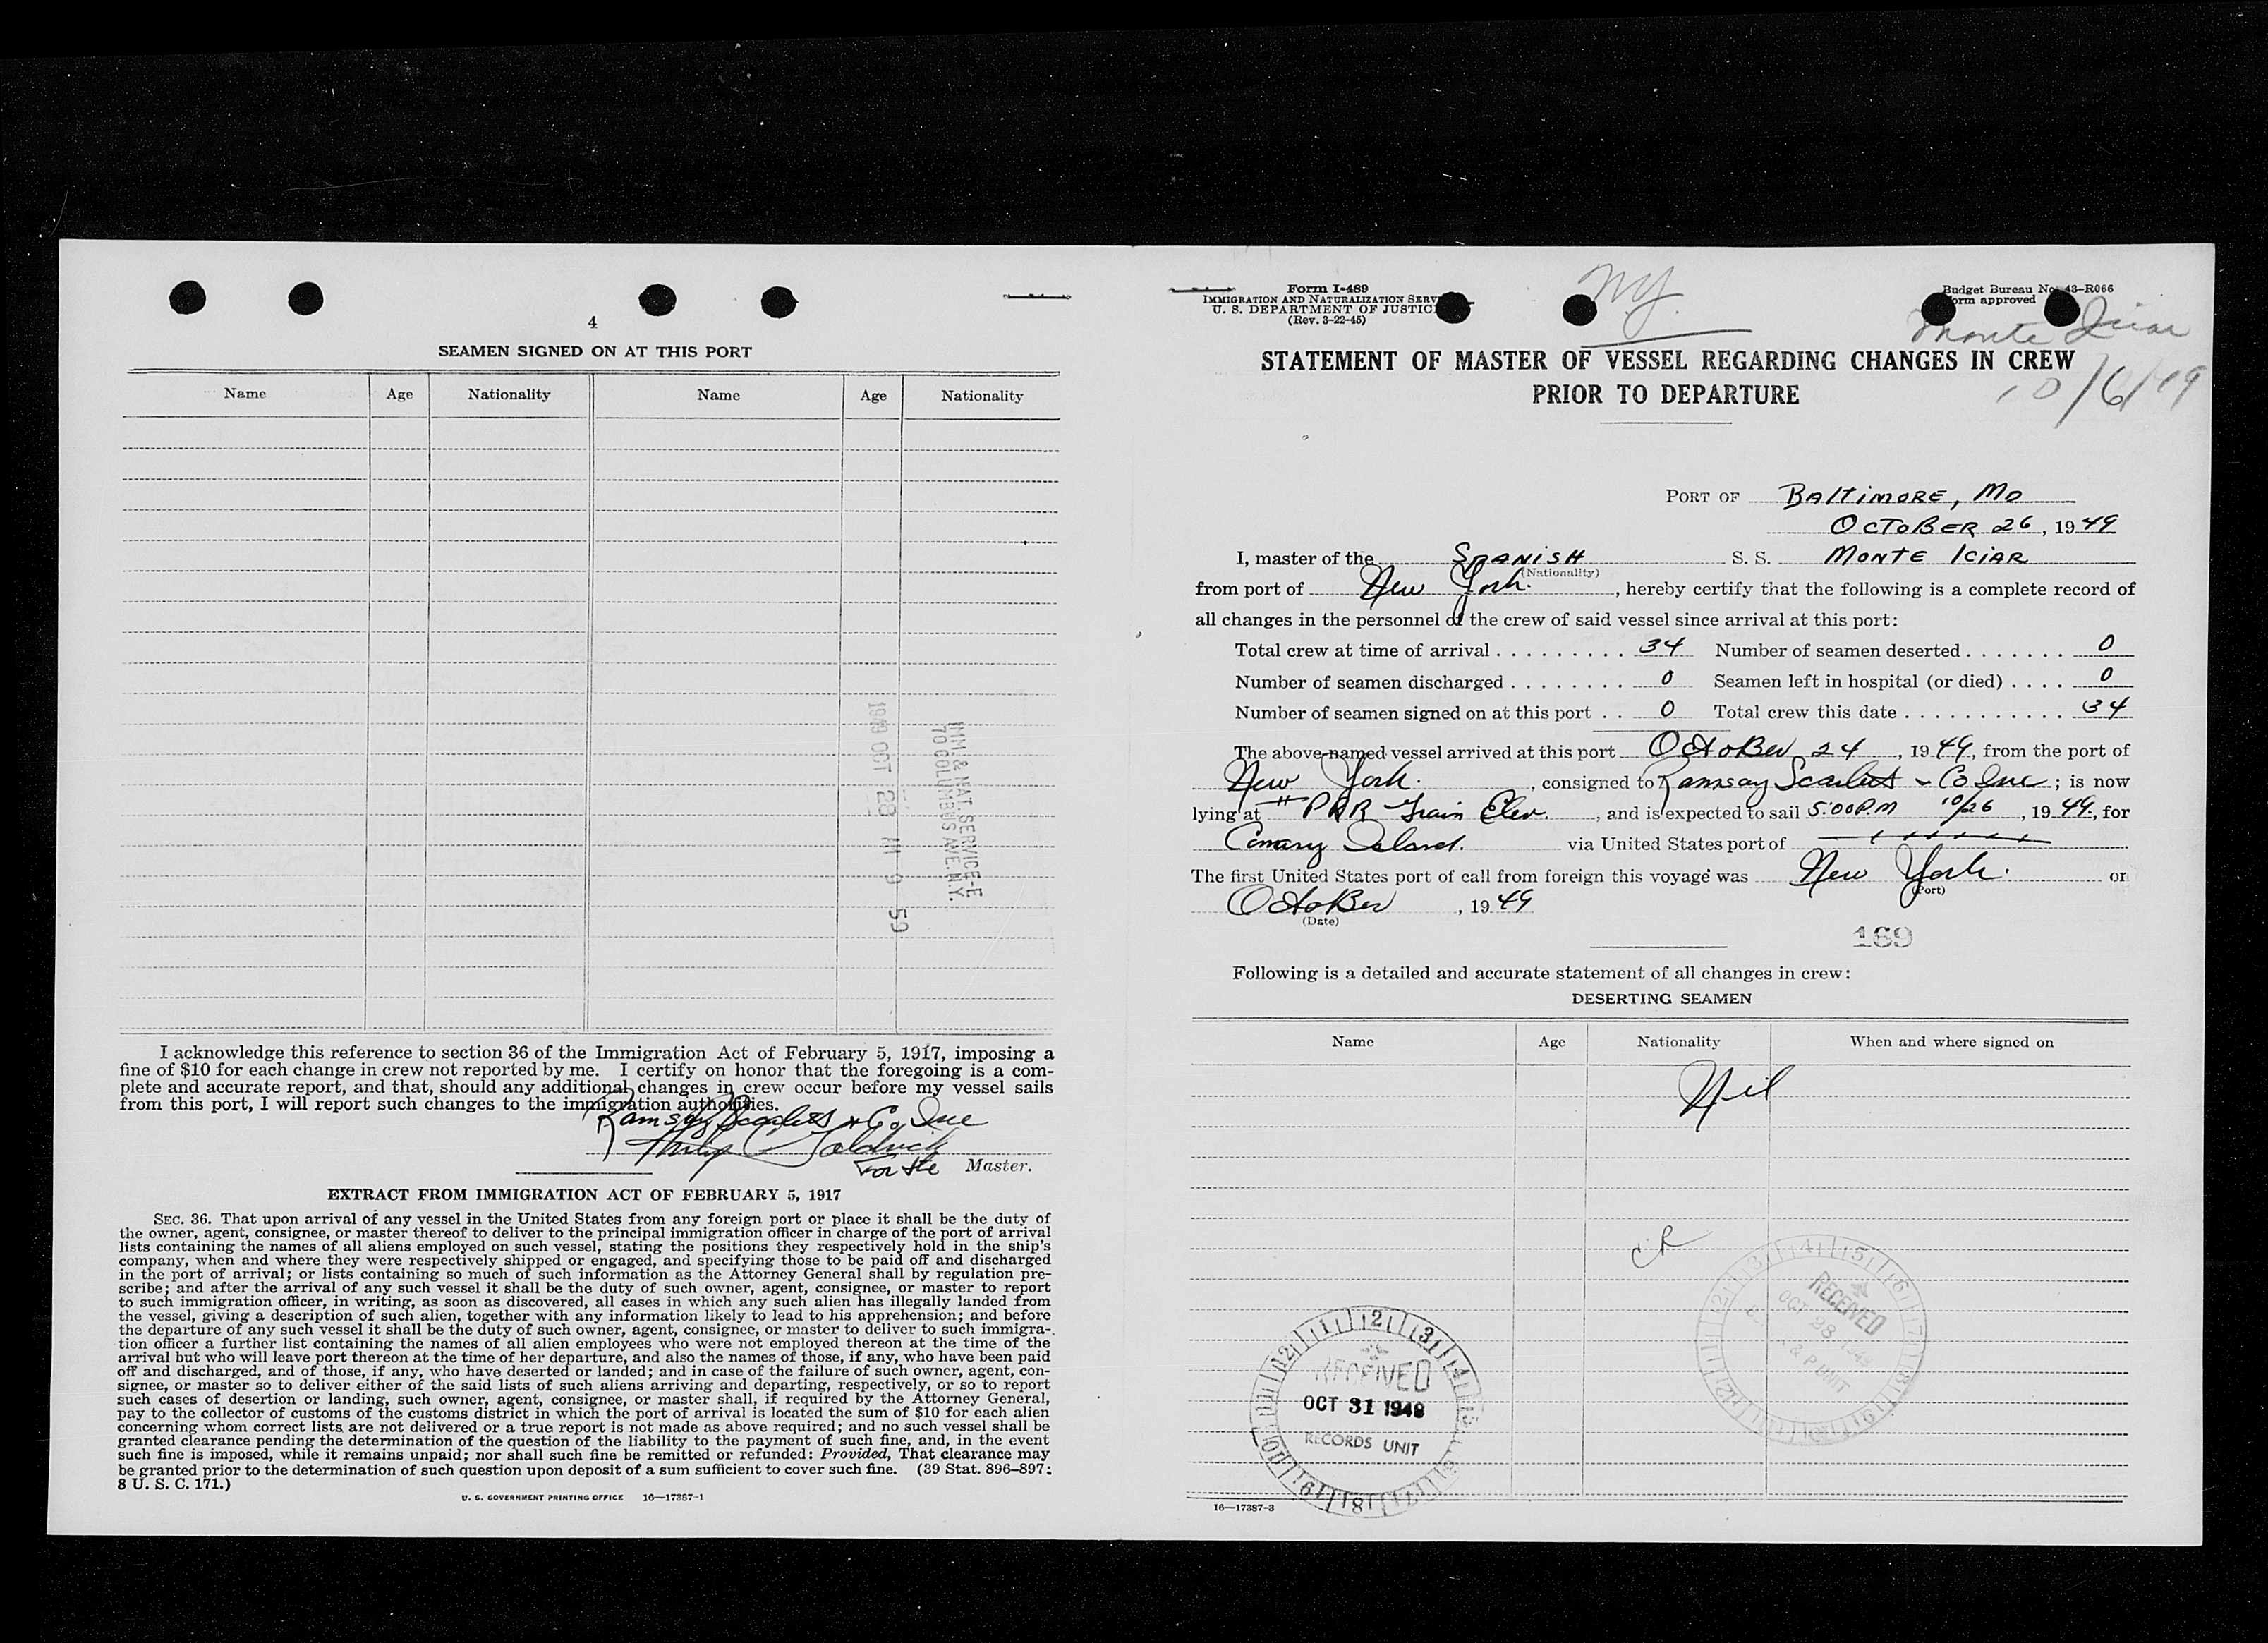 4
SEAMEN SIGNED ON AT THIS PORT
Name Age Nationality Name Age Nationality
1949 OCT 28 AM 9 59
IMM. & NAT. SERVICE-E
70 COLUMBUS AVE. N.Y.
I acknowledge this reference to section 36 of the Immigration Act of February 5, 1917, imposing a
fine of $10 for each change in crew not reported by me. I certify on honor that the foregoing is a com-
plete and accurate report, and that, should any additional changes in crew occur before my vessel sails
from this port, I will report such changes to the immigration authorities.
Ramsay Scarlett & Co Inc
Philip C
For the Master.
EXTRACT FROM IMMIGRATION ACT OF FEBRUARY 5, 1917
SEC. 36. That upon arrival of any vessel in the United States from any foreign port or place it shall be the duty of
the owner, agent, consignee, or master thereof to deliver to the principal immigration officer in charge of the port of arrival
lists containing the names of all aliens employed on such vessel, stating the positions they respectively hold in the ship's
company, when and where they were respectively shipped or engaged, and specifying those to be paid off and discharged
in the port of arrival; or lists containing so much of such information as the Attorney General shall by regulation pre-
scribe; and after the arrival of any such vessel it shall be the duty of such owner, agent, consignee, or master to report
to such immigration officer, in writing, as soon as discovered, all cases in which any such alien has illegally landed from
the vessel, giving a description of such alien, together with any information likely to lead to his apprehension; and before
the departure of any such vessel it shall be the duty of such owner, agent, consignee, or master to deliver to such immigra-
tion officer a further list containing the names of all alien employees who were not employed thereon at the time of the
arrival but who will leave port thereon at the time of her departure, and also the names of those, if any, who have been paid
off and discharged, and of those, if any, who have deserted or landed; and in case of the failure of such owner, agent, con-
signee, or master so to deliver either of the said lists of such aliens arriving and departing, respectively, or so to report
such cases of desertion or landing, such owner, agent, consignee, or master shall, if required by the Attorney General,
pay to the collector of customs of the customs district in which the port of arrival is located the sum of $10 for each alien
concerning whom correct lists are not delivered or a true report is not made as above required; and no such vessel shall be
granted clearance pending the determination of the question of the liability to the payment of such fine, and, in the event
such fine is imposed, while it remains unpaid; nor shall such fine be remitted or refunded: Provided, That clearance may
be granted prior to the determination of such question upon deposit of a sum sufficient to cover such fine. (39 Stat. 896–897;
8 U. S. C. 171.)
U. S. GOVERNMENT PRINTING OFFICE 16—17387-1
Form I-489
IMMIGRATION AND NATURALIZATION SERV
U. S. DEPARTMENT OF JUSTIC
(Rev. 3-22-45)
NY
Budget Bureau No. 43–R066
orm approved
Monte Iciar
10/6/49
STATEMENT OF MASTER OF VESSEL REGARDING CHANGES IN CREW
PRIOR TO DEPARTURE
PORT OF BALTIMORE, MD
OCTOBER 26, 1949
I, master of the SPANISH S. S. MONTE ICIAR
(Nationality)
from port of New York., hereby certify that the following is a complete record of
all changes in the personnel of the crew of said vessel since arrival at this port:
Total crew at time of arrival . . . . . . . . . 34 Number of seamen deserted . . . . . . . 0
Number of seamen discharged . . . . . . . . 0 Seamen left in hospital (or died) . . . . 0
Number of seamen signed on at this port . . 0 Total crew this date . . . . . . . . . . . 34
The above-named vessel arrived at this port October 24, 1949, from the port of
New York., consigned to Ramsay Scarlett & Co Inc; is now
lying at PRR Grain Elev., and is expected to sail 5:00 P.M 10/26, 1949, for
Canary Island. via United States port of
The first United States port of call from foreign this voyage was New York. on
(Port)
October, 1949
(Date)
169
Following is a detailed and accurate statement of all changes in crew:
DESERTING SEAMEN
Name Age Nationality When and where signed on
Nil
CR
RECEIVED
OCT 28 1949
& P UNIT
RECEIVED
OCT 31 1949
RECORDS UNIT
16—17387-3